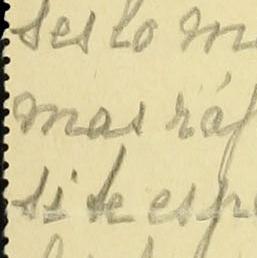 ses lo m
mas ráp
si te espe